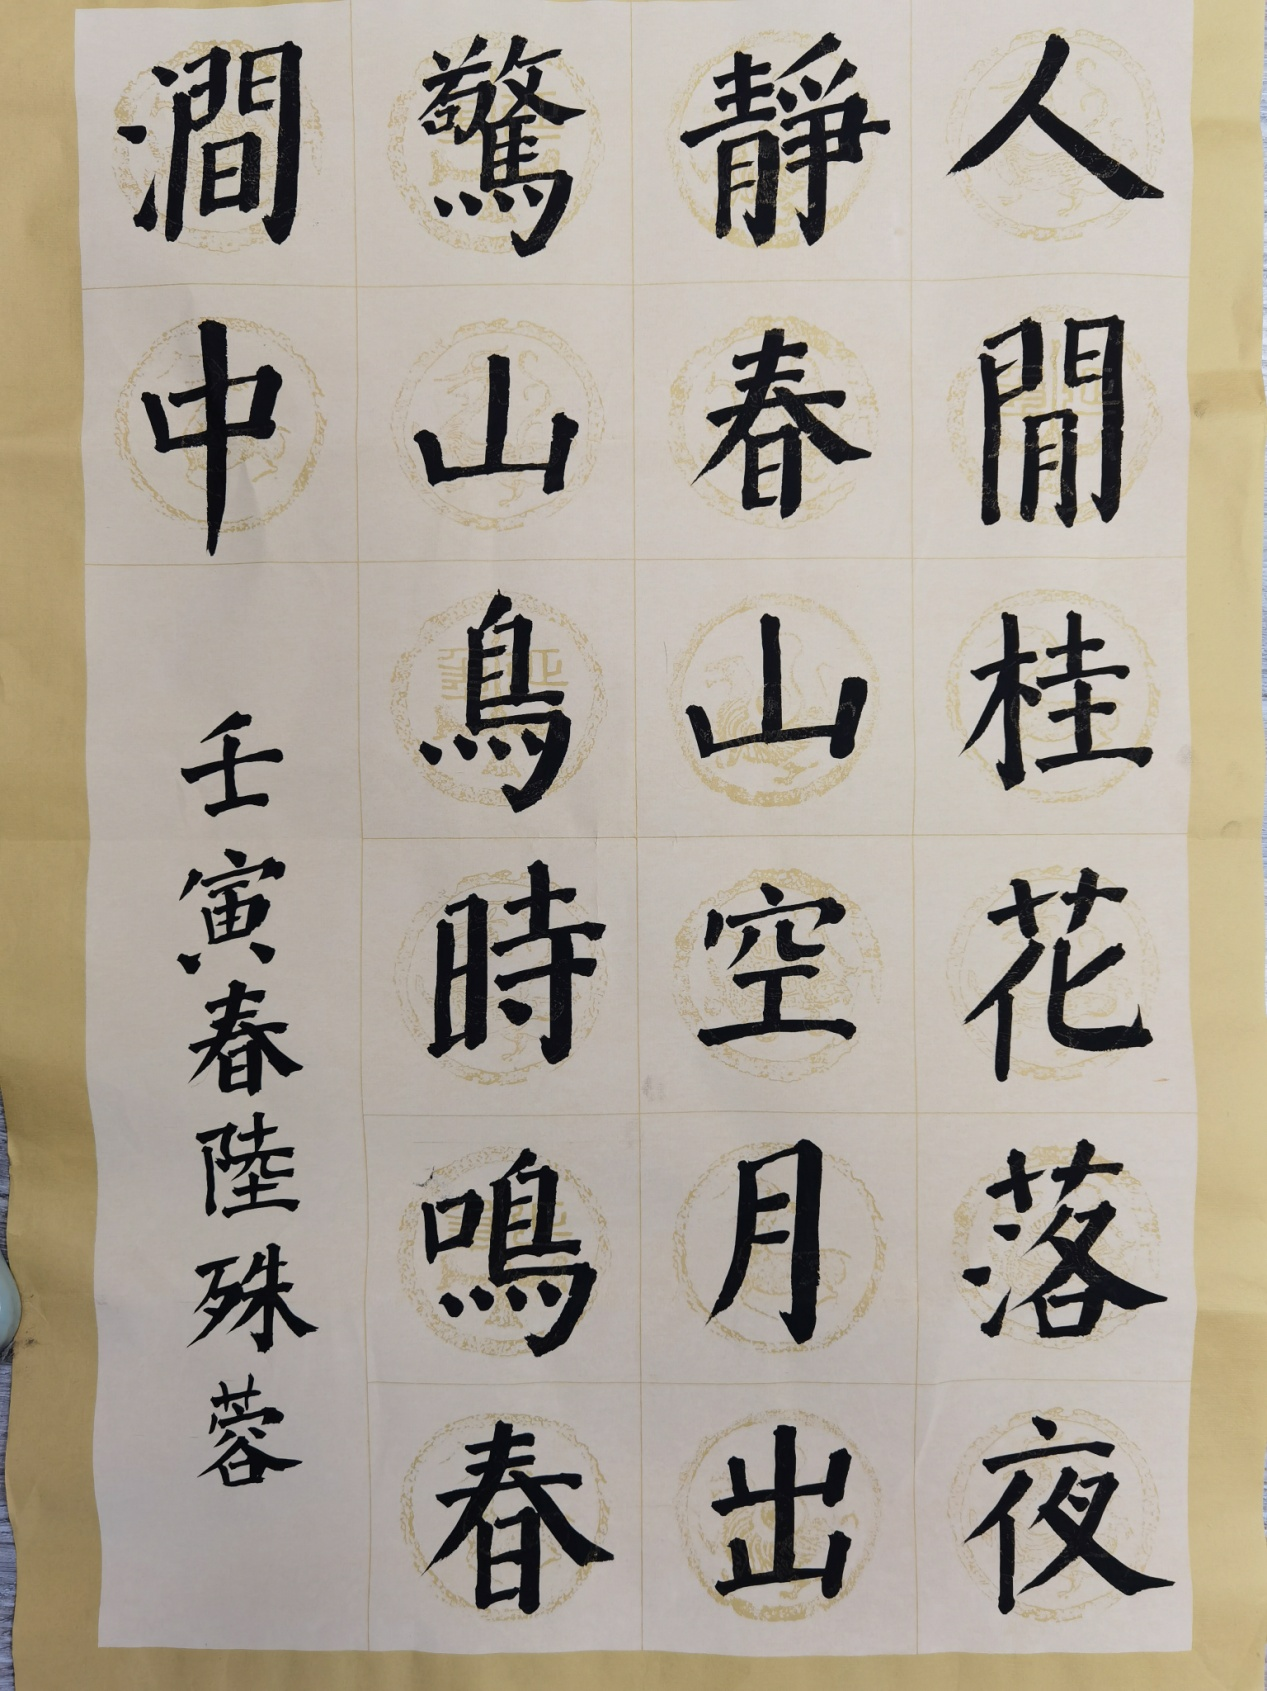 人閒桂花落夜
靜春山空月出
驚山鳥時鳴春
澗中
壬寅春陸殊蓉